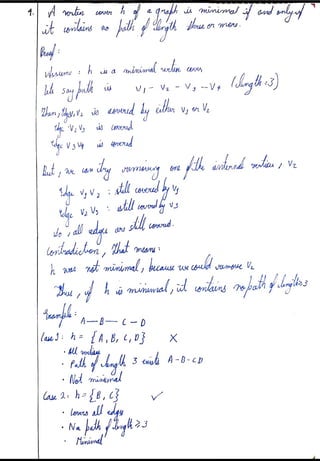 1. A vertex cover h of a graph is minimal if and only if
it contains no path of length three or more.
Proof:
Assume: h is a minimal vertex cover
let say path is V₁ - V₂ - V₃ -- V₄ (length = 3)
Then, Edge V₁V₂ is covered by either V₁ or V₂
Edge V₂V₃ is covered
Edge V₃V₄ is covered
But, we can try removing one of the internal vertices, V₂
Edge V₁V₂ : still covered by V₁
Edge V₂V₃ : still covered by V₃
So, all edges are still covered.
Contradiction, That means:
h was not minimal, because we could remove V₂
Thus, if h is minimal, it contains no path of length ≥ 3
Example:
A—B—C—D
Case 1: h = {A, B, C, D} X
• All vertices
• Path of length 3 exists A-B-C-D
• Not minimal
Case 2: h = {B, C} ✓
• Covers all edges
• No path of length ≥ 3
• Minimal